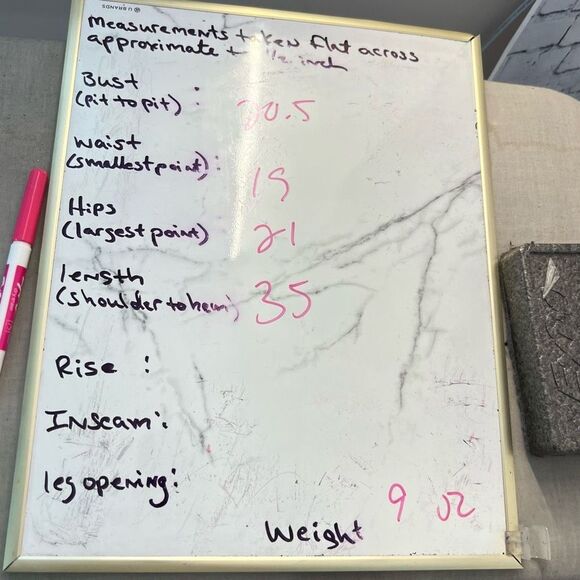 U BRANDS
Measurements taken flat across
approximate 1/2 inch
Bust
(pit to pit) : 20.5
waist
(smallest point) : 19
Hips
(largest point) 21
length
(shoulder to hem) 35
Rise :
Inseam:
leg opening:
9 oz
Weight